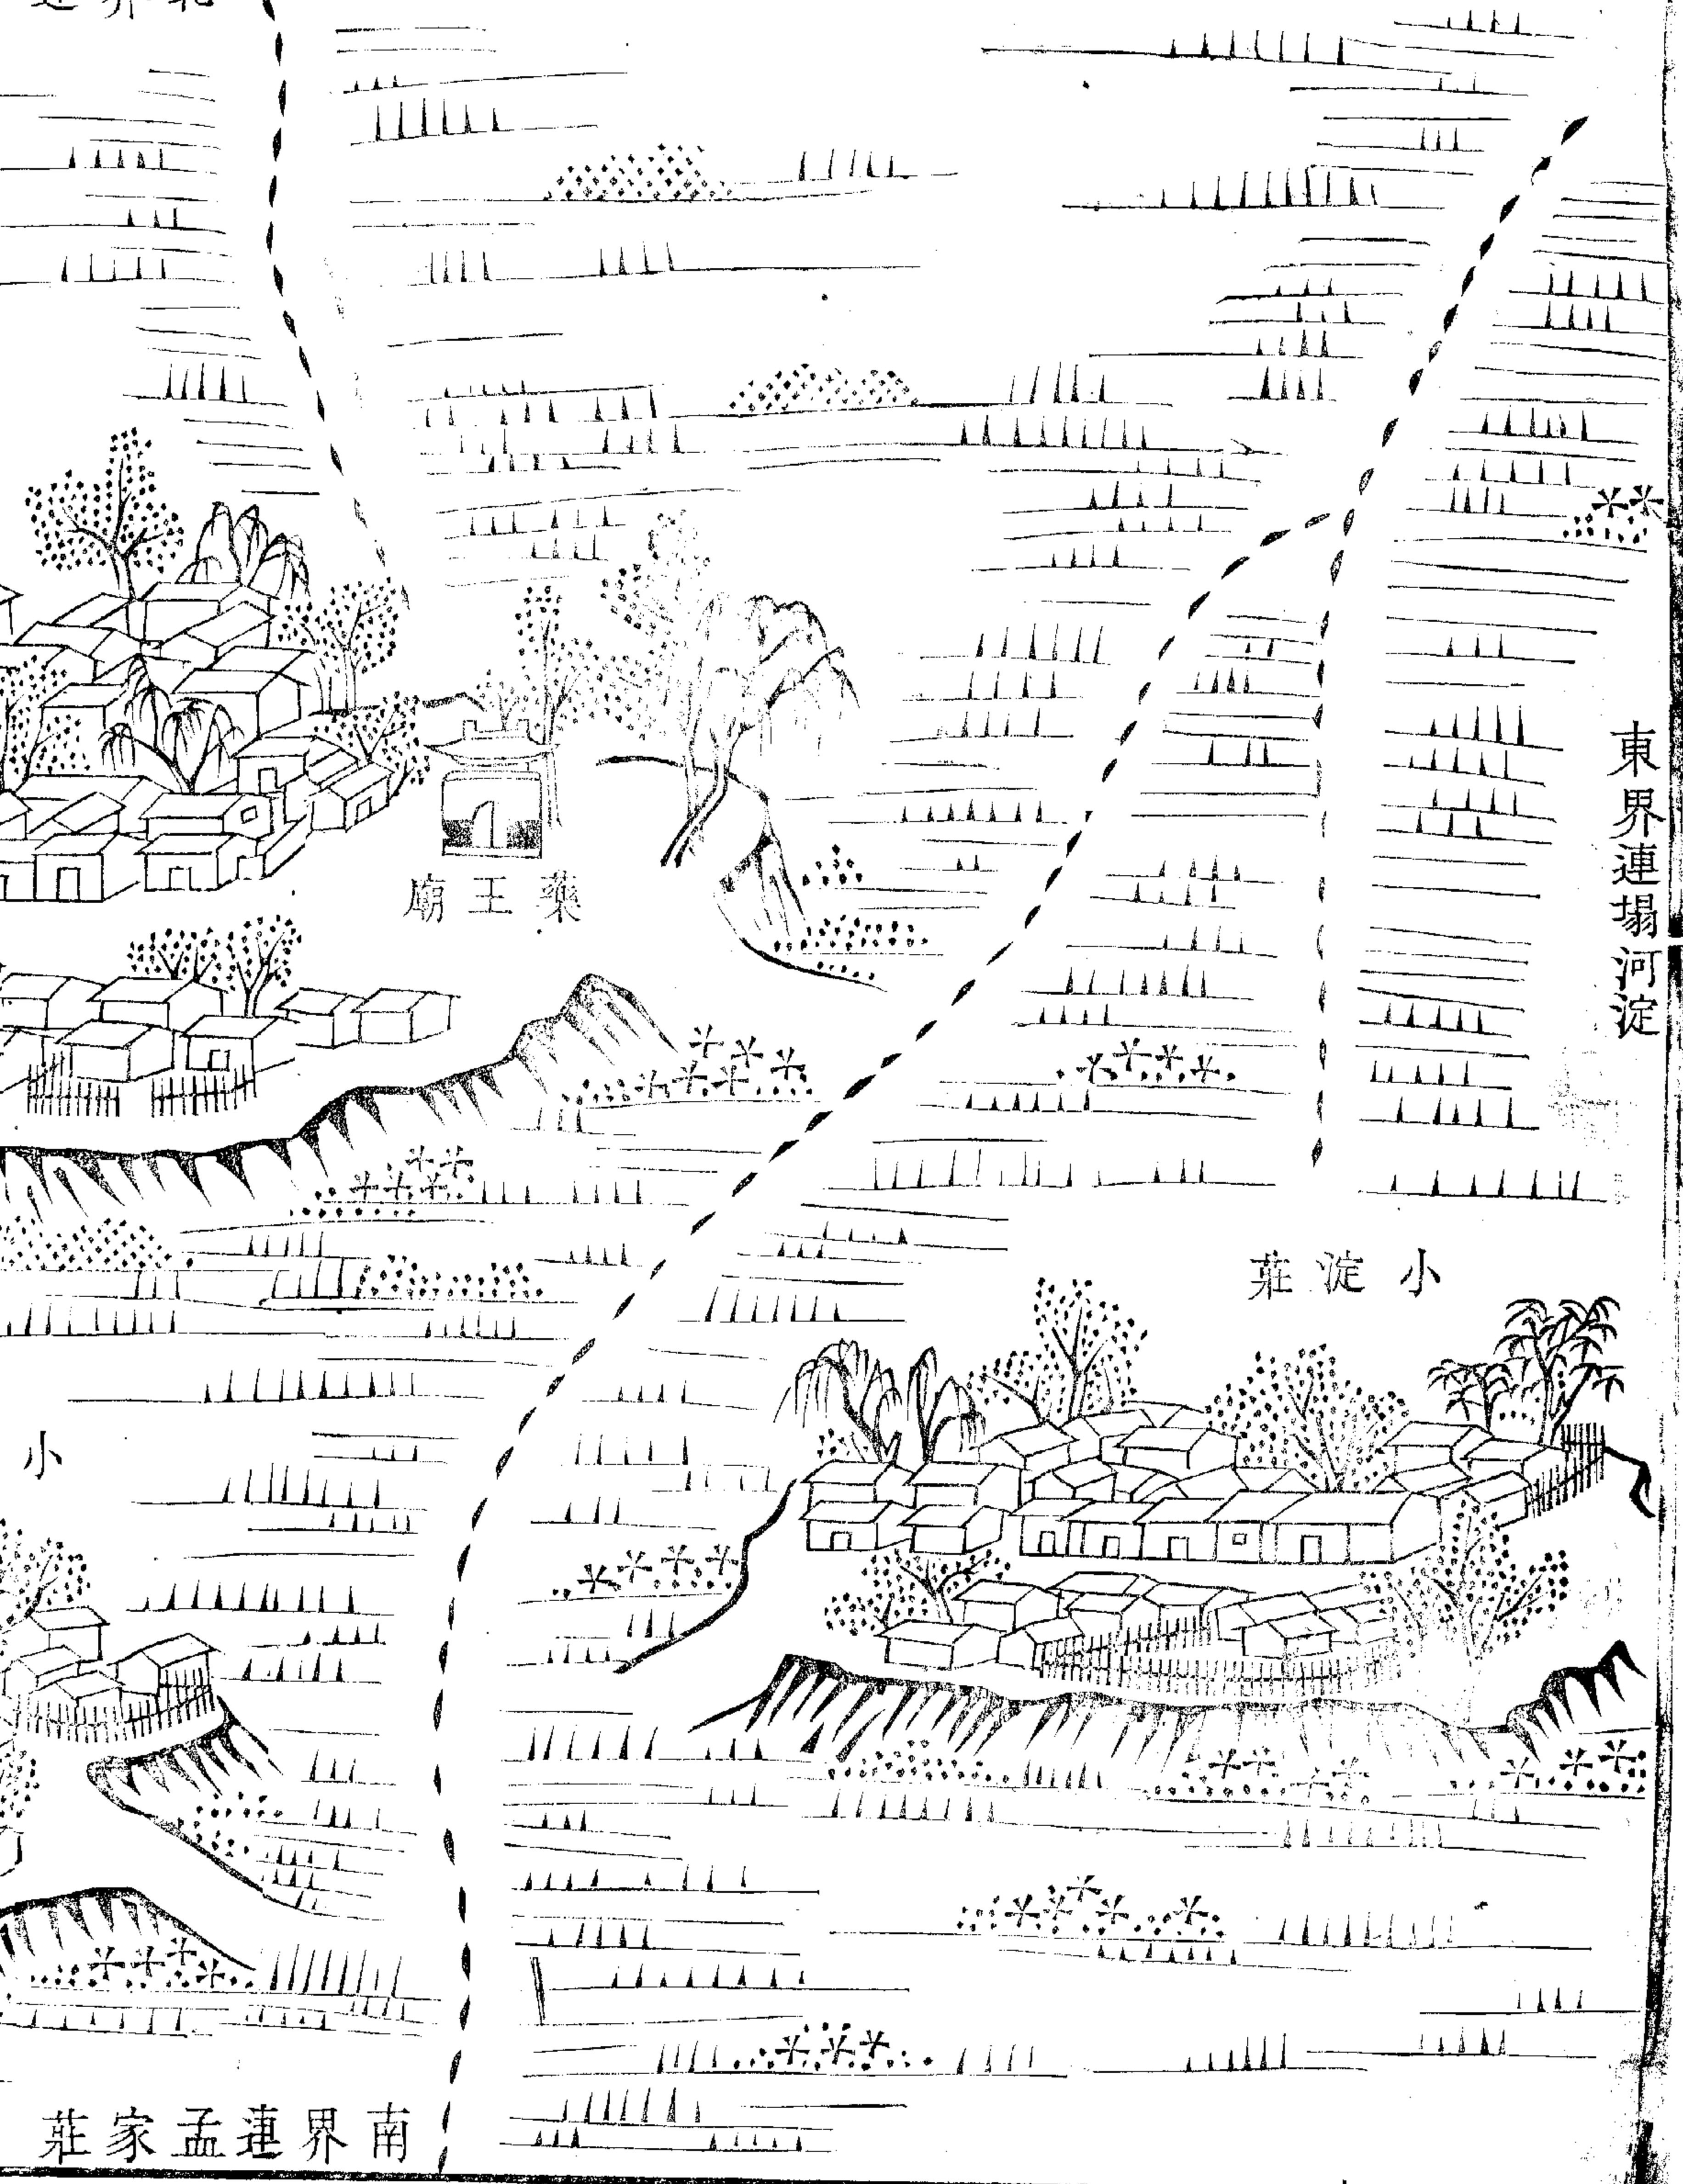 東界連塌河淀
藥王廟
小淀莊
小
南界連孟家莊